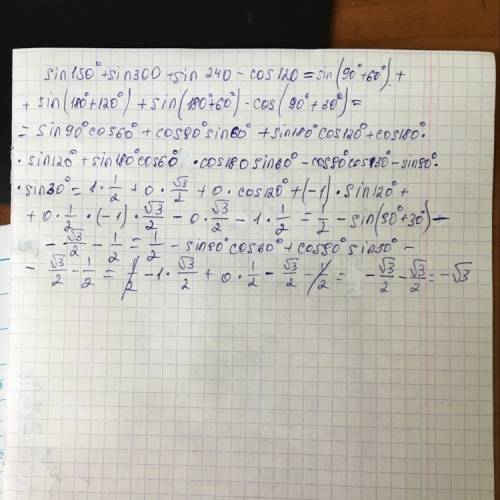 sin150°+sin300+sin 240-cos120=sin(90°+60°)+
+sin(180°+120°)+sin(180°+60°)-cos(90°+30°)=
=sin90°cos60°+cos90°sin60°+sin180°cos120°+cos180°·
·sin120°+sin180°cos60° ·cos180sin60°-cos90°cos30°-sin90°·
·sin30°=1·1/2+0·√3/2+0·cos120°+(-1)·sin120°+
+0·1/2·(-1)·√3/2-0·√3/2-1·1/2=1/2-sin(90°+30°)-
-√3/2-1/2=1/2-sin90°cos30°+cos90°sin30°-
-√3/2-1/2=1/2-1·√3/2+0·1/2-√3/2-1/2=-√3/2-√3/2=-√3